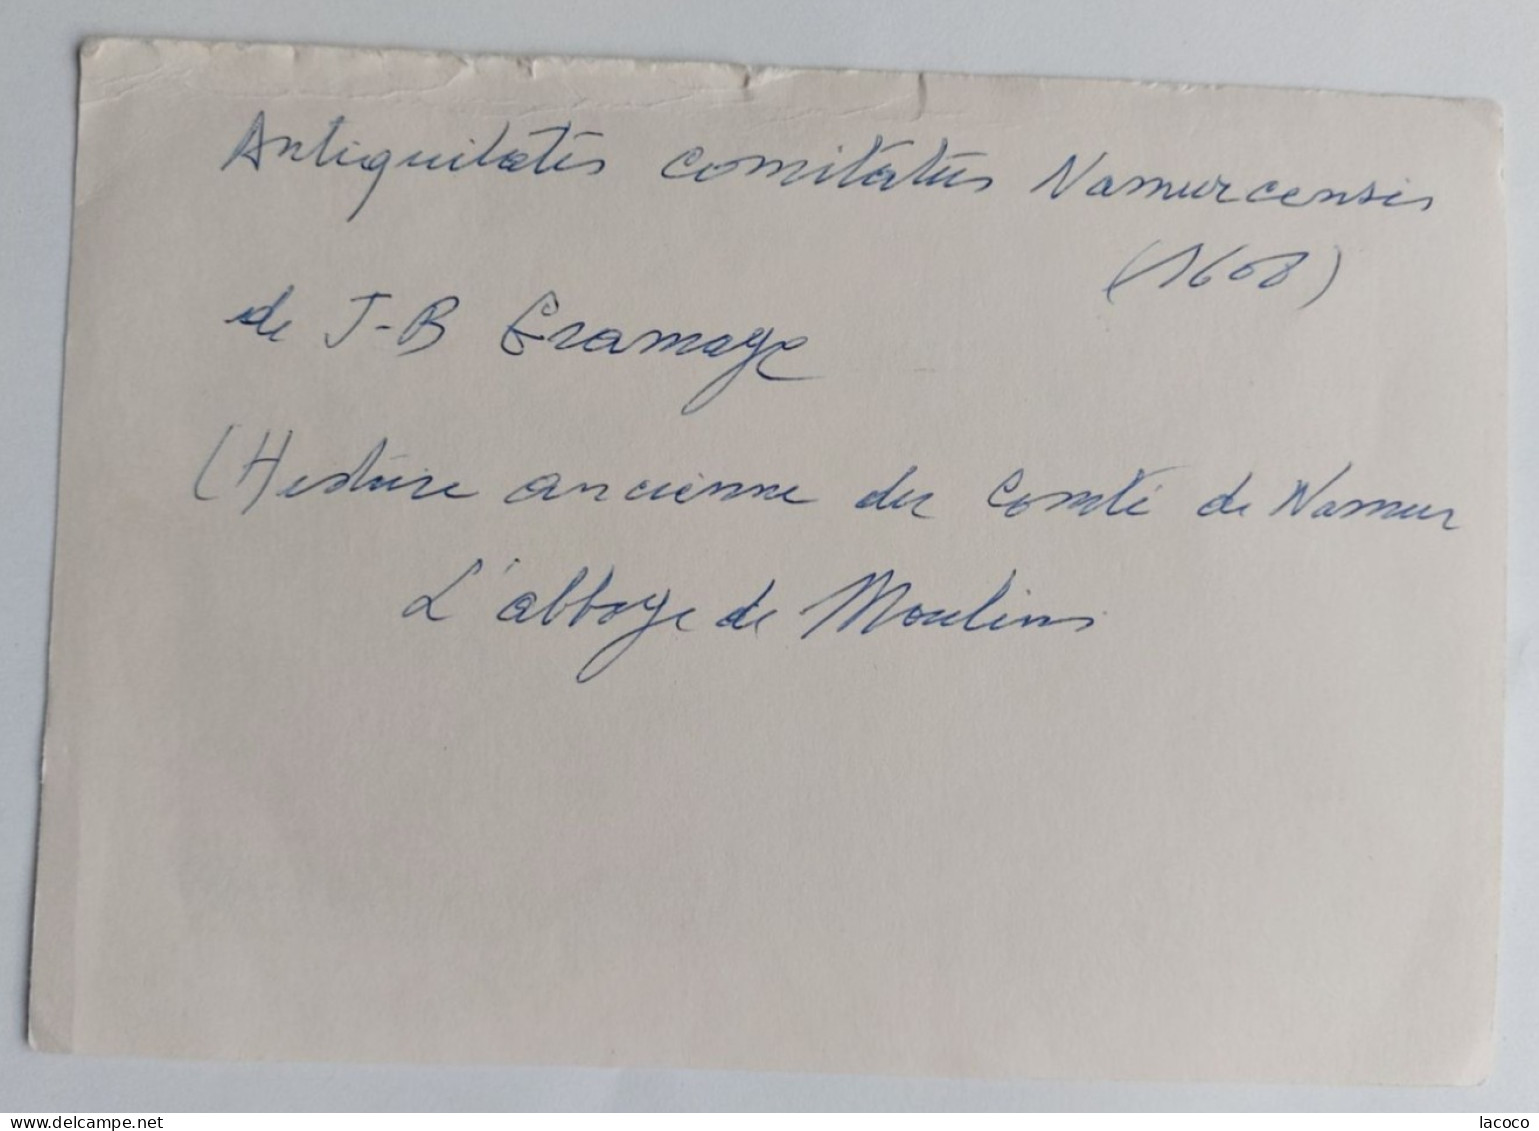 Antiquitatis comitatus Namurcensis
(1608)
de J-B Gramaye
(Histoire ancienne du Comté de Namur
L'abbaye de Moulins
delcampe.net
lacoco